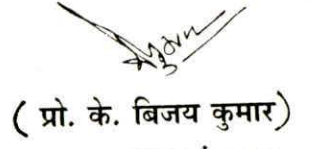 ( प्रो. के. बिजय कुमार)